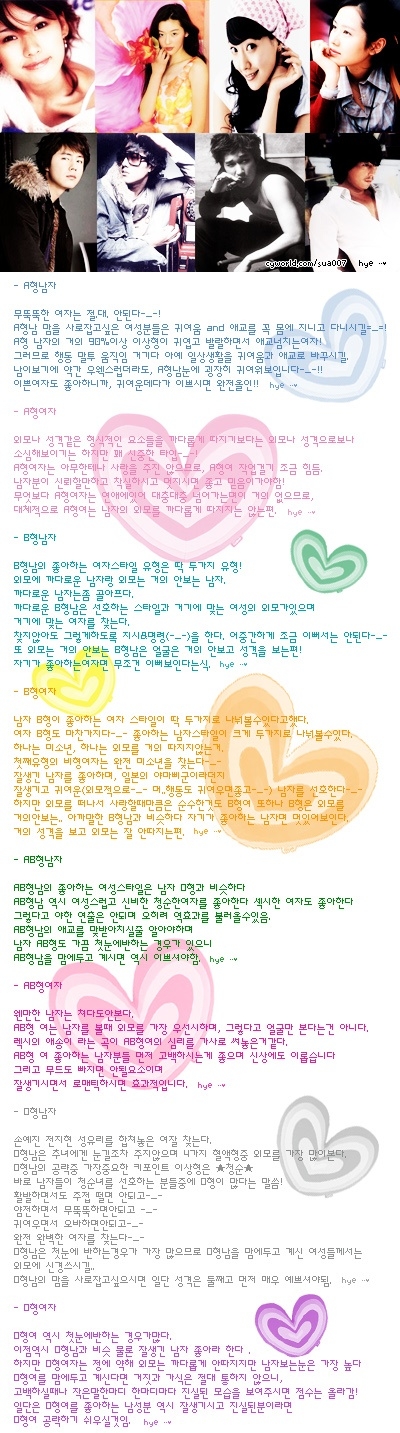 cyworld.com/sua007 hye ··♥
- A형남자
무뚝뚝한 여자는 절.대. 안된다-_-!
A형남 맘을 사로잡고싶은 여성분들은 귀여움 and 애교를 꼭 몸에 지니고 다니시길=_=!
A형 남자의 거의 90%이상 이상형이 귀엽고 발랄하면서 애교넘치는여자!
그러므로 행동 말투 움직임 거기다 아예 일상생활을 귀여움과 애교로 바꾸시길.
남이보기에 약간 우웩스럽더라도, A형남눈에 굉장히 귀여워보입니다-_-!!
이쁜여자도 좋아하니까, 귀여운데다가 이쁘시면 완전올인!! hye ··♥
- A형여자
외모나 성격같은 형식적인 요소들을 까다롭게 따지기보다는 외모나 성격으로보나
소심해보이기는 하지만 꽤 신중한 타입-_-!
A형여자는 아무한테나 사랑을 주진 않으므로, A형여 작업걸기 조금 힘듬.
남자분이 신뢰할만하고 착실하시고 멋지시며 좋고 믿음이가야함!
무엇보다 A형여자는 연애에있어 대충대충 넘어가는면이 거의 없으므로,
대체적으로 A형여는 남자의 외모를 까다롭게 따지지는 않는편. hye ··♥
- B형남자
B형남의 좋아하는 여자스타일 유형은 딱 두가지 유형!
외모에 까다로운 남자랑 외모는 거의 안보는 남자.
까다로운 남자는좀 골아프다.
까다로운 B형남은 선호하는 스타일과 거기에 맞는 여성의 외모가있으며
거기에 맞는 여자를 찾는다.
찾지않아도 그렇게하도록 지시&명령(-_-)을 한다. 어중간하게 조금 이뻐서는 안된다-_-
또 외모는 거의 안보는 B형남은 얼굴은 거의 안보고 성격을 보는편!
자기가 좋아하는여자면 무조건 이뻐보인다는식. hye ··♥
- B형여자
남자 B형이 좋아하는 여자 스타일이 딱 두가지로 나뉘볼수있다고했다.
여자 B형도 마찬가지다-_- 좋아하는 남자스타일이 크게 두가지로 나뉘볼수있다.
하나는 미소년, 하나는 외모를 거의 따지지않는거.
첫째유형의 비형여자는 완전 미소년을 찾는다-_-
잘생긴 남자를 좋아하며, 일본의 아마삐군이라던지
잘생기고 귀여운(외모적으로-_- 머..행동도 귀여우면좋고-_-) 남자를 선호한다-_-
하지만 외모를 떠나서 사랑할때만큼은 순수한것도 B형여 또하나 B형은 외모를
거의안보는.. 아까말한 B형남과 비슷하다 자기가 좋아하는 남자면 멋있어보인다.
거의 성격을 보고 외모는 잘 안따지는편. hye ··♥
- AB형남자
AB형남의 좋아하는 여성스타일은 남자 형과 비슷하다
AB형남 역시 여성스럽고 신비한 청순한여자를 좋아한다 섹시한 여자도 좋아한다
그렇다고 야한 연출은 안되며 오히려 역효과를 불러올수있음.
AB형남의 애교를 맞받아치실줄 알아야하며
남자 AB형도 가끔 첫눈에반하는 경우가 있으니
AB형남을 맘에두고 계시면 역시 이쁘셔야함. hye ··♥
- AB형여자
웬만한 남자는 쳐다도안본다.
AB형 여는 남자를 볼때 외모를 가장 우선시하며, 그렇다고 얼굴만 본다는건 아니다.
렉시의 애송이 라는 곡이 AB형여의 심리를 가사로 써놓은거같다.
AB형 여 좋아하는 남자분들 먼저 고백하시는게 좋으며 신상에도 이롭습니다
그리고 무드도 빠지며 안될요소이며
잘생기시면서 로맨틱하시면 효과적입니다. hye ··♥
- 형남자
손예진 전지현 성유리를 합쳐놓은 여잘 찾는다.
형남은 추녀에게 눈길조차 주지않으며 4가지 혈액형중 외모를 가장 많이본다.
형남의 공략중 가장중요한 키포인트 이상형은 ★청순★
바로 남자들이 청순녀를 선호하는 분들중에 형이 많다는 말씀!
활발하면서도 주접 떨면 안되고-_-
얌전하면서 무뚝뚝하면안되고 -_-
귀여우면서 오바하면안되고-_-
완전 완벽한 여자를 찾는다-_-
형남은 첫눈에 반하는경우가 가장 많으므로 형남을 맘에두고 계신 여성들께서는
외모에 신경쓰시길..
형남의 마음 사로잡고싶으시면 일단 성격은 둘째고 먼저 매우 예쁘셔야됨. hye ··♥
- 형여자
형여 역시 첫눈에반하는 경우가많다.
이점역시 형남과 비슷 물론 잘생긴 남자 좋아라 한다 .
하지만 형여자는 정에 약해 외모는 까다롭게 안따지지만 남자보는눈은 가장 높다
형여를 맘에두고 계신다면 거짓과 가식은 절대 통하지 않으니,
고백하실때나 작은말한마디 한마디마다 진실된 모습을 보여주시면 점수는 올라감!
일단은 형여를 좋아하는 남성분 역시 잘생기시고 진실된분이라면
형여 공략하기 쉬우실것임. hye ··♥